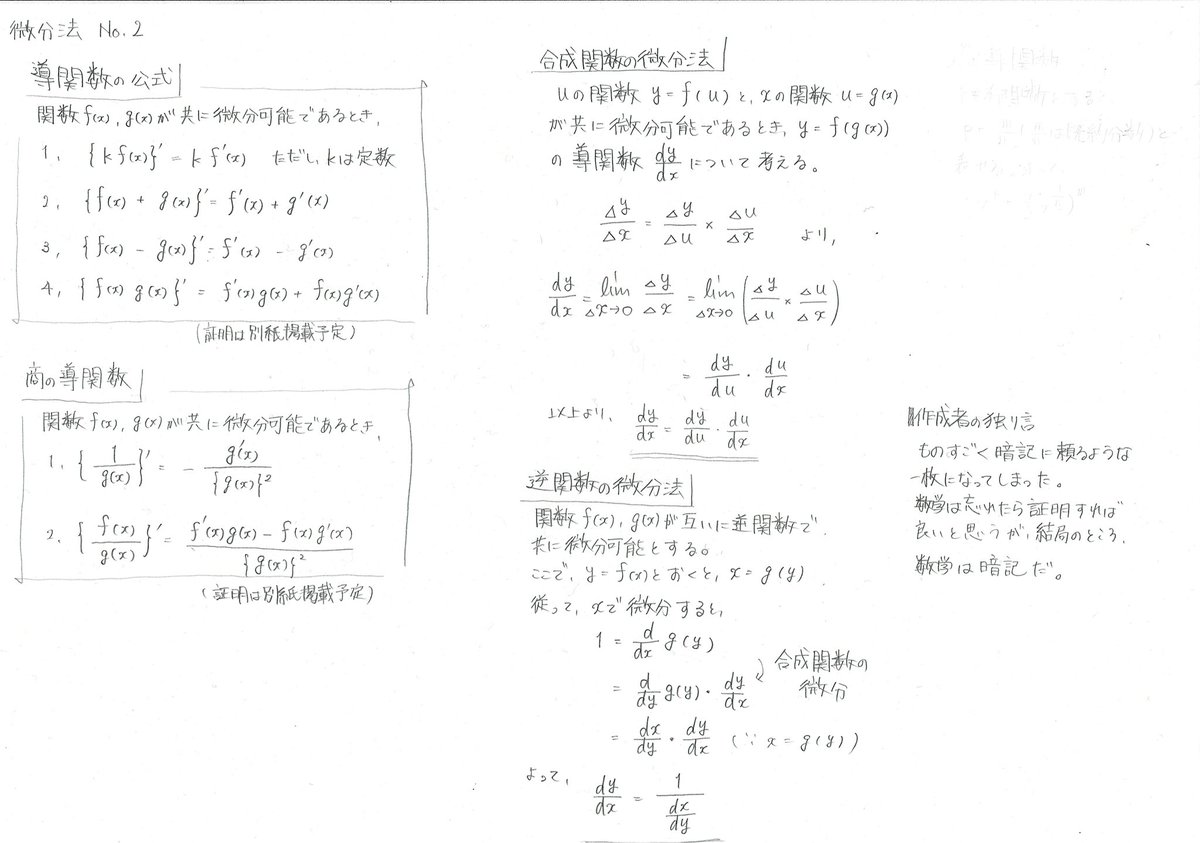 微分法 No.2
導関数の公式
関数 f(x), g(x)が共に微分可能であるとき,
1, {k f(x)}' = k f'(x) ただし, kは定数
2, {f(x) + g(x)}' = f'(x) + g'(x)
3, {f(x) - g(x)}' = f'(x) - g'(x)
4, {f(x) g(x)}' = f'(x)g(x) + f(x)g'(x)
(証明は別紙掲載予定)
商の導関数
関数 f(x), g(x)が共に微分可能であるとき,
1. {1/g(x)}' = - g'(x)/{g(x)}²
2. {f(x)/g(x)}' = f'(x)g(x) - f(x)g'(x)/{g(x)}²
(証明は別紙掲載予定)
合成関数の微分法
uの関数 y=f(u)と, xの関数 u=g(x)
が共に微分可能であるとき, y = f(g(x))
の導関数 dy/dx について考える。
Δy/Δx = Δy/Δu × Δu/Δx より,
dy/dx = lim Δx→0 Δy/Δx = lim Δx→0 (Δy/Δu × Δu/Δx)
= dy/du · du/dx
以上より, dy/dx = dy/du · du/dx
逆関数の微分法
関数 f(x), g(x)が互いに逆関数で
共に微分可能とする。
ここで, y = f(x)とおくと, x = g(y)
従って, xで微分すると,
1 = d/dx g(y)
= d/dy g(y) · dy/dx 合成関数の
微分
= dx/dy · dy/dx (∵ x = g(y))
よって, dy/dx = 1/(dx/dy)
作成者の独り言
ものすごく暗記に頼るような
一枚になってしまった。
数学は忘れたら証明すれば
良いと思うが, 結局のところ,
数学は暗記だ。